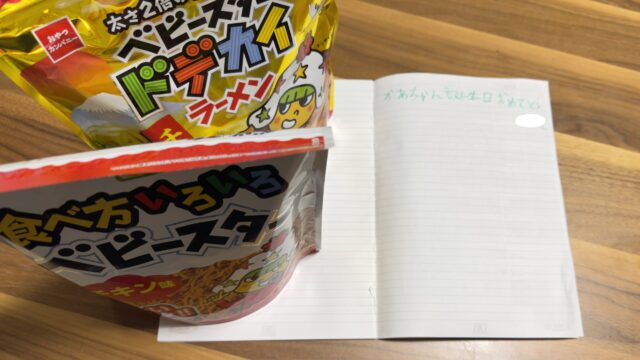 おやつ
カンパニー
太さ2倍
ベビースター
ドデカイ
ラーメン
チ
食べ方いろいろ
ベビースター
チキン味
かあちゃん誕生日おめでとう